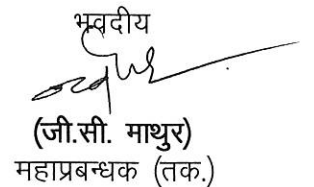 भवदीय
(जी.सी. माथुर)
महाप्रबन्धक (तक.)